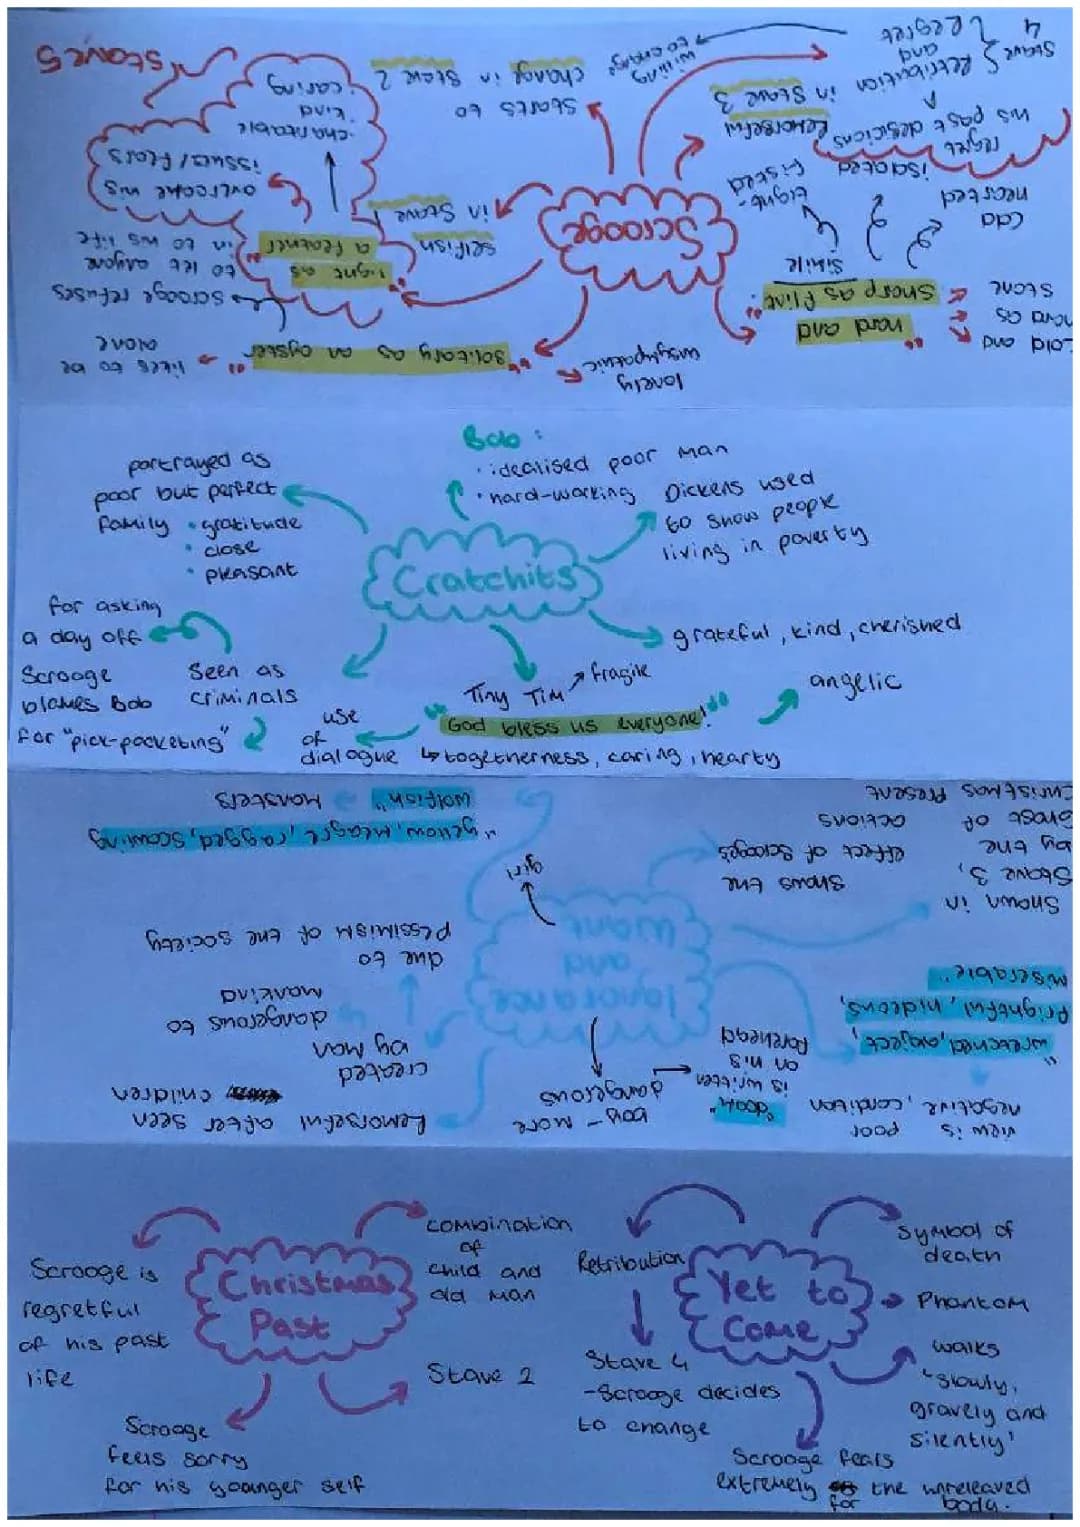 Scrooge
"hard and
sharp as flint"
simile
cold and
hard as
stone
cold
hearted
isolated
tight-
fisted
lonely
unsympathetic
"solitary as an oyster"
likes to be
alone
Scrooge refuses
to let anyone
in to his life
"light as
a feather"
overcome his
issues/fears
charitable
kind
caring
Stave 5
selfish
in Stave 1
starts to
change in Stave 2
willing
to change
Remorseful
in Stave 3
regret
his past desicions
Stave
4
Retribution
and
Regret
Cratchits
Bob:
· idealised poor man
· hard-working
Dickens used
to show people
living in poverty
portrayed as
poor but perfect
family · gratitude
· close
· pleasant
grateful, kind, cherished
angelic
Tiny Tim
fragile
"God bless us everyone!"
togetherness, caring, hearty
use
of
dialogue
Seen as
criminals
for asking
a day off
Scrooge
blames Bob
for "pick-pocketing"
Ignorance
and
Want
view is
negative, poor
condition
"wretched, abject,
frightful, hideous,
miserable"
Shown in
Stave 3,
by the
Ghost of
Christmas Present
shows the
effect of Scrooge's
actions
girl
boy - more
dangerous
"doom"
is written
on his
forehead
Remorseful after seen
children
created
by man
dangerous to
mankind
due to
pessimism of the society
"yellow, meagre, ragged, scowling
wolfish"
monsters
Christmas
Past
Scrooge is
regretful
of his past
life
combination
of
child and
old man
Stave 2
Scrooge
feels sorry
for his younger self
Yet to
Come
Retribution
Stave 4
-Scrooge decides
to change
Symbol of
death
Phantom
walks
"slowly,
gravely and
silently'
Scrooge fears
extremely for the unreleaved
body.